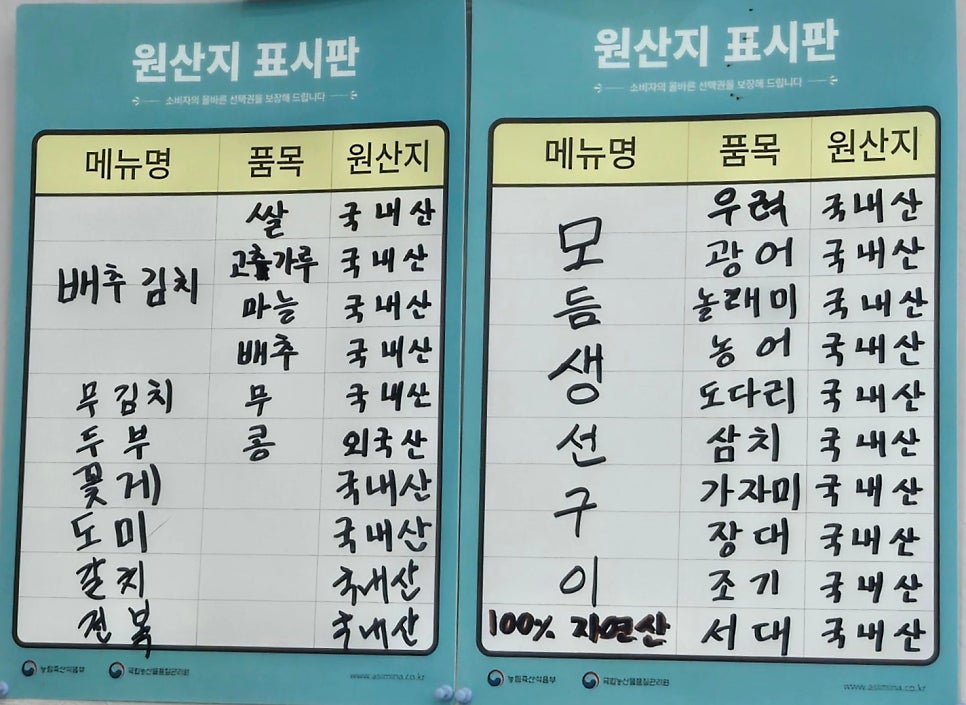 원산지 표시판
소비자의 올바른 선택권을 보장해 드립니다
메뉴명 품목 원산지
쌀 국내산
배추김치 고춧가루 국내산
마늘 국내산
배추 국내산
무김치 무 국내산
두부 콩 외국산
꽃게 국내산
도미 국내산
갈치 국내산
전복 국내산
농림축산식품부 국립농산물품질관리원 www.asimina.co.kr
원산지 표시판
소비자의 올바른 선택권을 보장해 드립니다
메뉴명 품목 원산지
모듬생선구이
우럭 국내산
광어 국내산
놀래미 국내산
농어 국내산
도다리 국내산
삼치 국내산
가자미 국내산
장대 국내산
조기 국내산
100% 자연산 서대 국내산
농림축산식품부 국립농산물품질관리원 www.asimina.co.kr